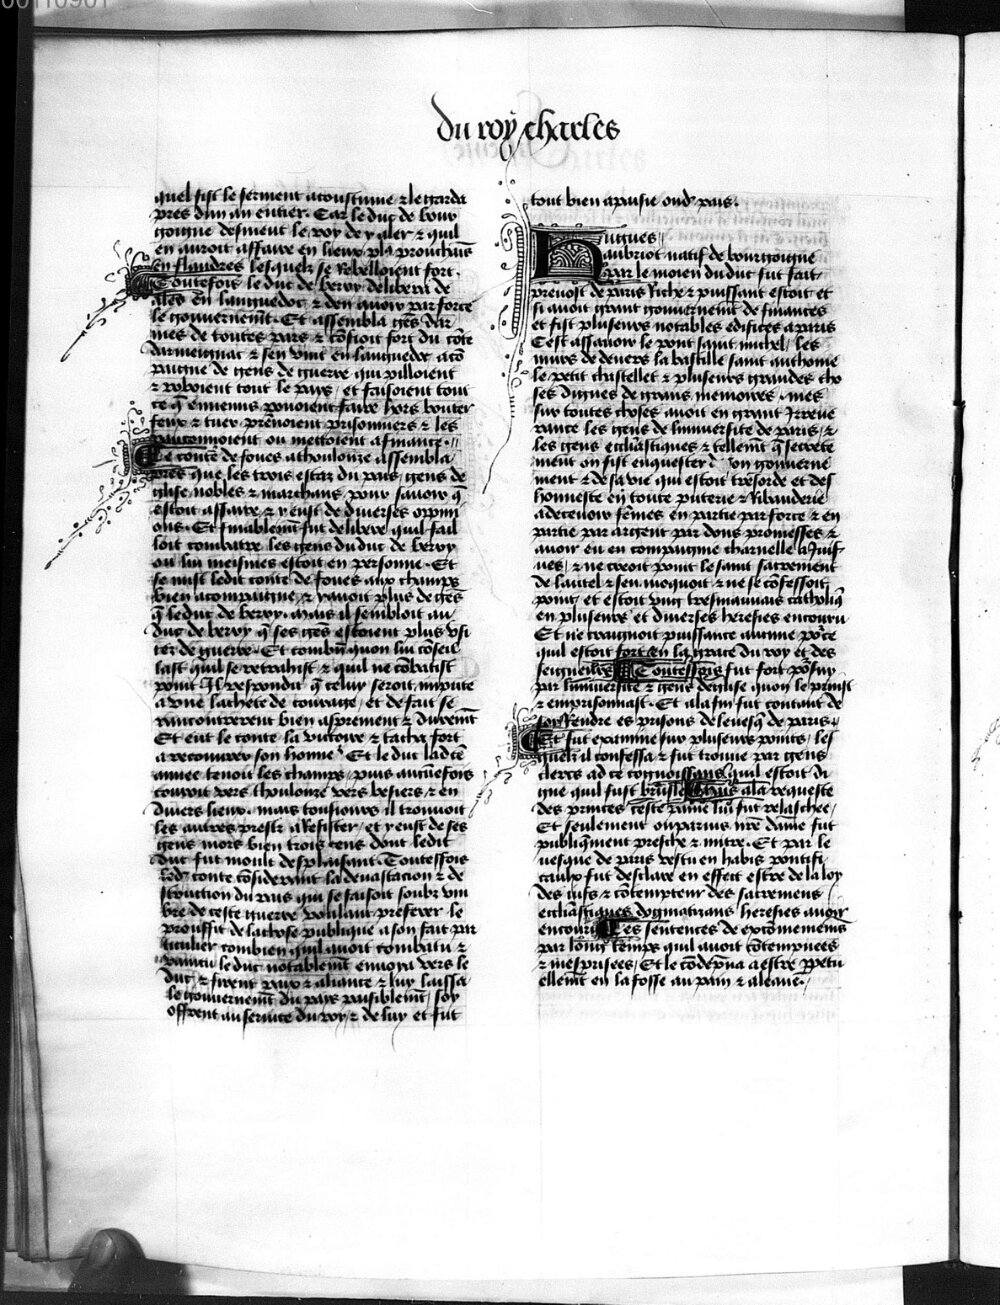 du roy charles
quel fist le serment acoustume ⁊ le garda
pres dun an entier. Car le duc de bour
goigne desment le roy de y aler ⁊ quil
en auroit affaire en lieux pl9 prouchais
en flandres lesquelz se Rebelloient fort.
Toutefois le duc de berry delibera de
ales en languedoc ⁊ den auoir par force
le gouuernemt. Et assembla ges dar
mes de toutes pars ⁊ cofioit fort du cote
darmeignac ⁊ sen vint en languedoc aco
paigne de gens de guerre qui pilloient
⁊ roboient tout le pays / et faisoient tout
ce q ennemis pouoient faire hors bouter
feux ⁊ tuer prenoient prisonniers ⁊ les
ranconnoient ou mettoient a finance.
Le conte de foues a thoulouze assembla
pres que les trois estaz du pais / gens de
glise nobles ⁊ marchans pour sauoir q
estoit affaire ⁊ y eust de diuerses oppini
ons. Et finablemt fut delibere quil fail
loit combatre les gens du duc de berry
ou lui meismes estoit en personne. Et
se mist ledit conte de foues aux champs
bien acompaigne ⁊ y auoit plus de ges
q le duc de berry. mais il sembloit au
duc de berry q ses ges estoient plus vsi
tez de guerre. Et combn quon lui coseil
last quil se retrahist ⁊ quil ne cobatist
point Il respondit q celuy seroit impute
a vne lachete de courage / et de fait se
rencontrerent bien asprement ⁊ durent
Et eut le conte la victoire ⁊ tacha fort
a recouurer son honneur Et le duc lad ce
annee tenoit les champs / puis aucunefois
couroit vers thoulouze vers besiers ⁊ en
diuers lieux. mais tousiours il trouuoit
les autres prestz a Resister / et y eust de ses
gens mors bien trois cens dont ledit
duc fut moult desplaisant. Toutesfois
led conte considerant la deuastacion ⁊ de
struction du pais qui se faisoit soubz vm
bre de ceste guerre voulant preferer le
prouffit de la chose publique a son fait par
ticulier combien quil auoit combatu ⁊
vaincu le duc notablemt enuoya vers le
duc / ⁊ firent paix ⁊ aliance ⁊ luy laissa
le gouuernemt du pays paisiblemt / soy
offrent au seruice du roy ⁊ de luy et fut
tout bien apaisie oud pais.
Hugues
aubriot natif de bourgoigne
par le moien du duc fut fait
preuost de paris Riche ⁊ puissant estoit et
si auoit grant gouuernemt de finances
et fist plusieurs notables edifices a paris
Cest assauoir le pont saint michel / les
murs de deuers la bastille saint anthoine
le petit chastellet ⁊ plusieurs grandes cho
ses dignes de grans memoires. mes
sur toutes choses auoit en grant Irreue
rance les gens de luniuersite de paris / ⁊
les gens ecclastiques ⁊ tellemt q secrete
ment on fist enquester son gouuerne
ment ⁊ de sa vie qui estoit tresorde et des
honneste en toute puterie ⁊ Ribauderie
a deceuoir femes en partie par force ⁊ en
partie par argent par dons promesses ⁊
auoir eu en compaignie charnelle a Juif
ues / ⁊ ne creoit point le saint sacrement
de lautel ⁊ sen moquoit ⁊ ne se cofessoit
point / et estoit vng tresmauuais catholiq
en plusieurs et diuerses heresies encouru
Et ne craignoit puissance aucune porce
quil estoit fort en la grace du roy et des
seigneurs Toutesfois fut fort porsuy
par luniuersite ⁊ gens deglise quon le prinst
⁊ emprisonnast. Et ala fin fut contant de
soy Rendre es prisons de leuesq de paris
Et fut examine sur plusieurs points / les
quelz il confessa ⁊ fut trouue par gens
clercs ad ce cognoissans / quil estoit di
gne quil fust brusle Mais ala requeste
des princes ceste paine lui fut relaschee
Et seulement ou paruis nre dame fut
publiqment presche ⁊ mitre. Et par le
uesque de paris vestu en habis pontifi
caulx fut desclare en effect estre de la loy
des iuifs ⁊ cotempteur des sacremens
ecclastiques dogmatizans heresies auoir
encouru Les sentences de excomemens
par long temps quil auoit contempnees
⁊ mesprisees / Et le codempna a estre perpetu
ellemt en la fosse au pain ⁊ a leaue.